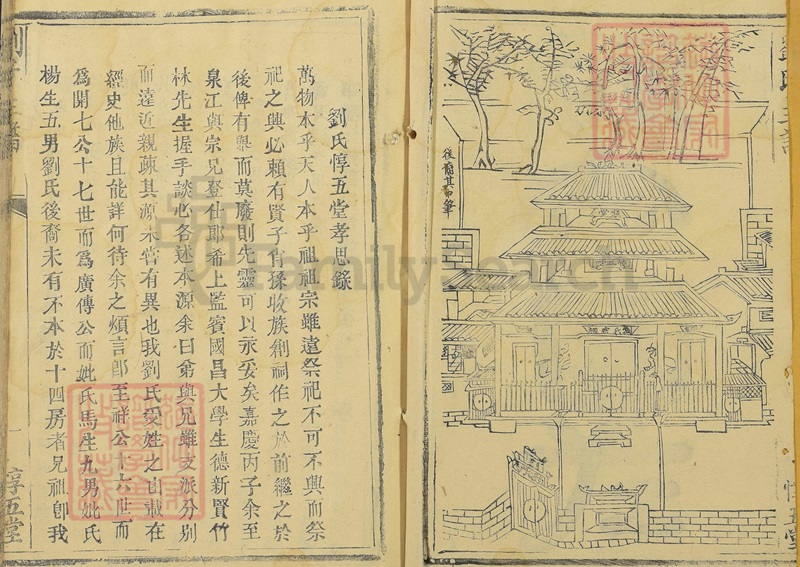 劉氏惇五堂孝思錄
萬物本乎天人本乎祖祖宗雖遠祭祀不可不興而祭
祀之興必賴有賢子肖孫收族創祠作之於前繼之於
後俾有舉而莫廢則先靈可以永妥矣嘉慶丙子余至
泉江與宗兄登仕郎希上監賓國昌大學生德新賢竹
林先生握手談心各述本源余曰弟與兄雖支派分別
而遠近親疎其源未嘗有異也我劉氏受姓之由載在
經史他族且能詳何待余之煩言郎至祥公十六世而
為開七公十七世而為廣傳公而妣氏馬生九男妣氏
楊生五男劉氏後裔未有不本於十四房者兄祖卽我
惇五堂
後裔其
筆
惇五堂
FamilySearch